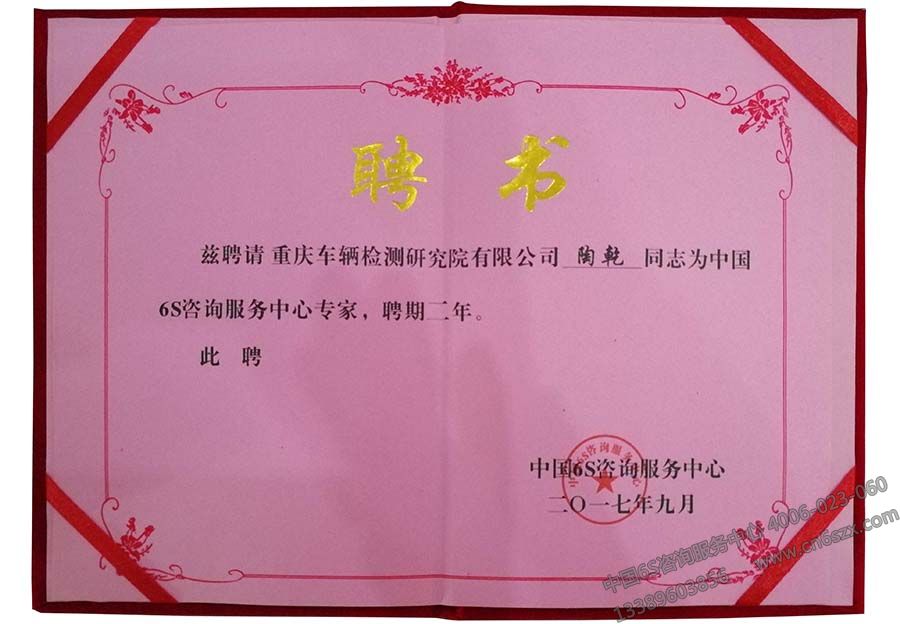 聘 书
兹聘请 重庆车辆检测研究院有限公司 陶乾 同志为中国
6S咨询服务中心专家，聘期二年。
此 聘
中国6S咨询服务中心
中国6S咨询服务中心
二〇一七年九月
中国6S咨询服务中心 4006-023-060
13389603856 www.cn6szx.com